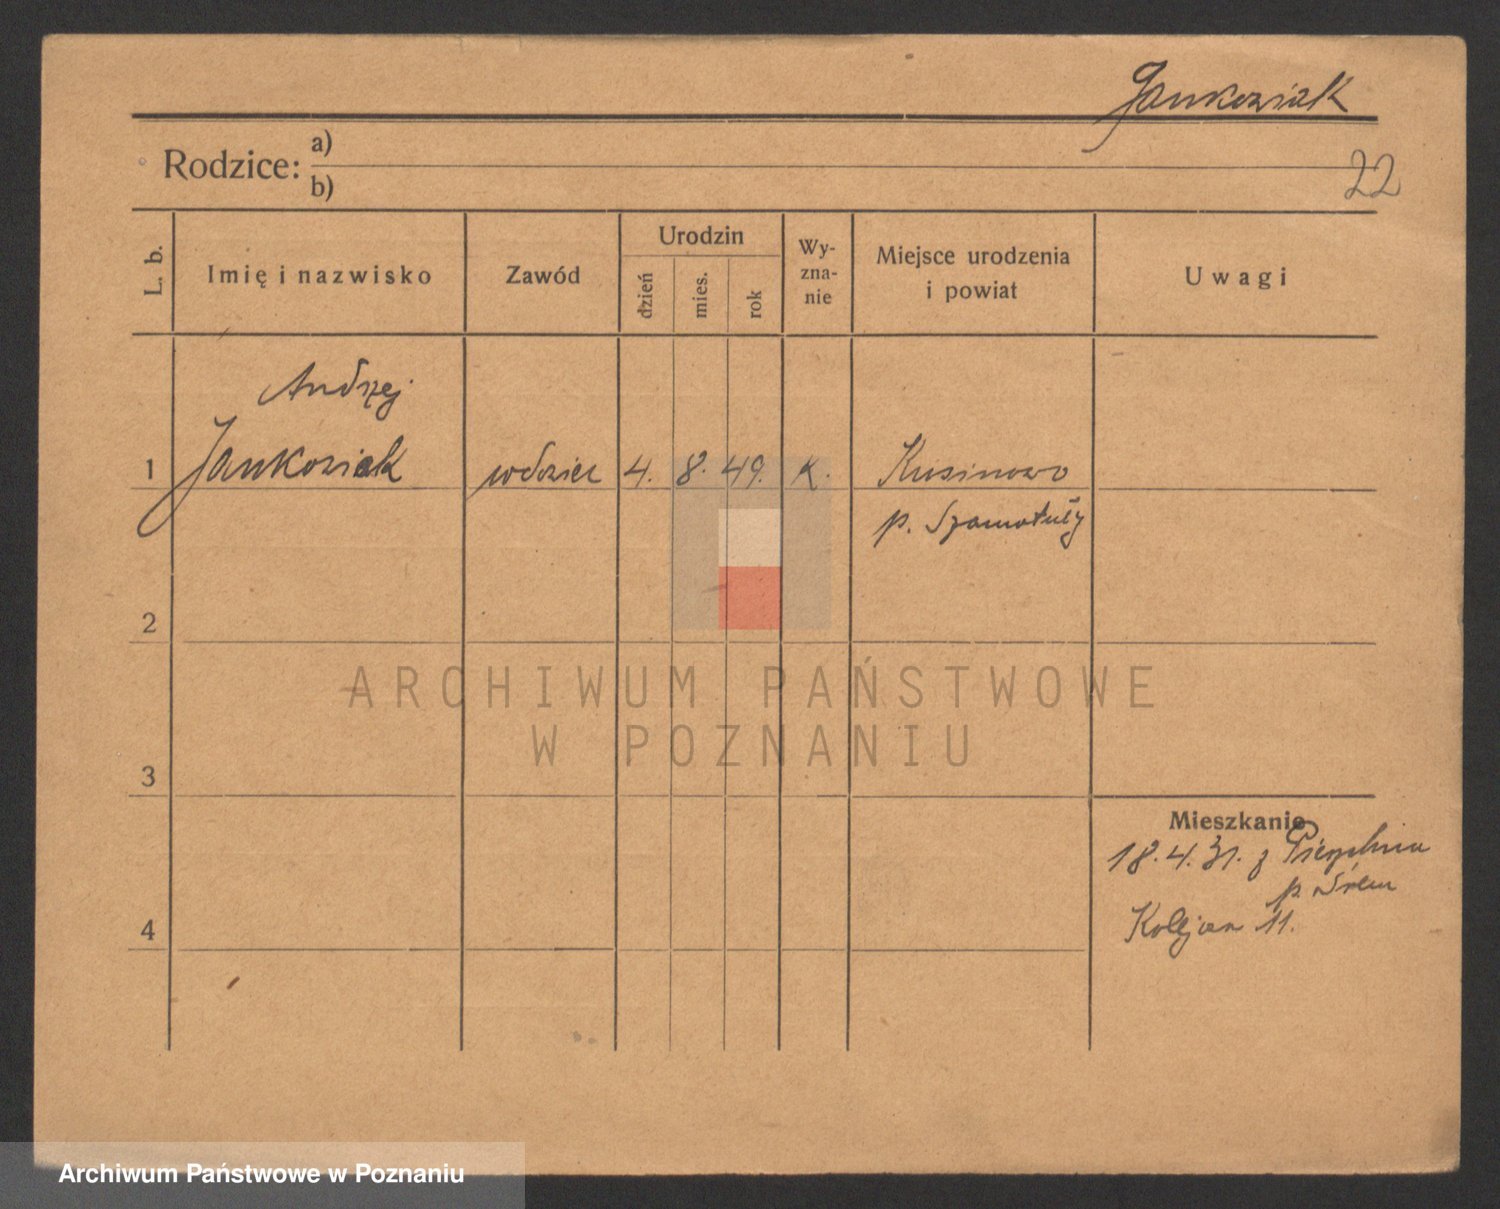 Jankowiak
Rodzice: a)
b)
22
L. b.
Imię i nazwisko
Zawód
Urodzin
dzień
mies.
rok
Wy-
zna-
nie
Miejsce urodzenia
i powiat
Uwagi
Andrzej
1 Jankowiak wdowiec 4. 8. 49. k.
p. Szamotuły
2
ARCHIWUM PAŃSTWOWE
W POZNANIU
3
Mieszkanie
18.4.31. z
p. Śrem
4 11.
Archiwum Państwowe w Poznaniu